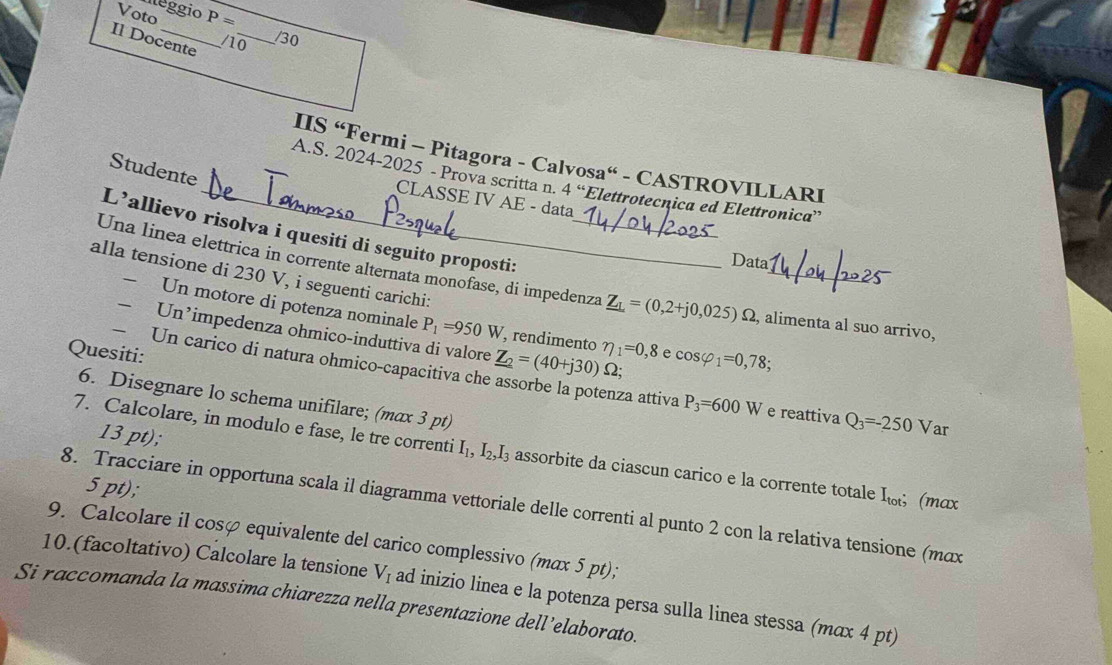 P =      /30
Voto      /10
Il Docente
IIS “Fermi – Pitagora - Calvosa“ - CASTROVILLARI
A.S. 2024-2025 - Prova scritta n. 4 “Elettrotecnica ed Elettronica”
CLASSE IV AE - data 14/04/2025
Studente De Tommaso Pasquale Data 14/04/2025
L’allievo risolva i quesiti di seguito proposti:
Una linea elettrica in corrente alternata monofase, di impedenza Z_L = (0,2+j0,025) Ω, alimenta al suo arrivo,
alla tensione di 230 V, i seguenti carichi:
– Un motore di potenza nominale P₁ =950 W, rendimento η₁=0,8 e cosφ₁=0,78;
– Un’impedenza ohmico-induttiva di valore Z₂ = (40+j30) Ω;
– Un carico di natura ohmico-capacitiva che assorbe la potenza attiva P₃=600 W e reattiva Q₃=-250 Var
Quesiti:
6. Disegnare lo schema unifilare; (max 3 pt)
7. Calcolare, in modulo e fase, le tre correnti I₁, I₂,I₃ assorbite da ciascun carico e la corrente totale I_tot; (max
13 pt);
8. Tracciare in opportuna scala il diagramma vettoriale delle correnti al punto 2 con la relativa tensione (max
5 pt);
9. Calcolare il cosφ equivalente del carico complessivo (max 5 pt);
10.(facoltativo) Calcolare la tensione V_I ad inizio linea e la potenza persa sulla linea stessa (max 4 pt)
Si raccomanda la massima chiarezza nella presentazione dell’elaborato.